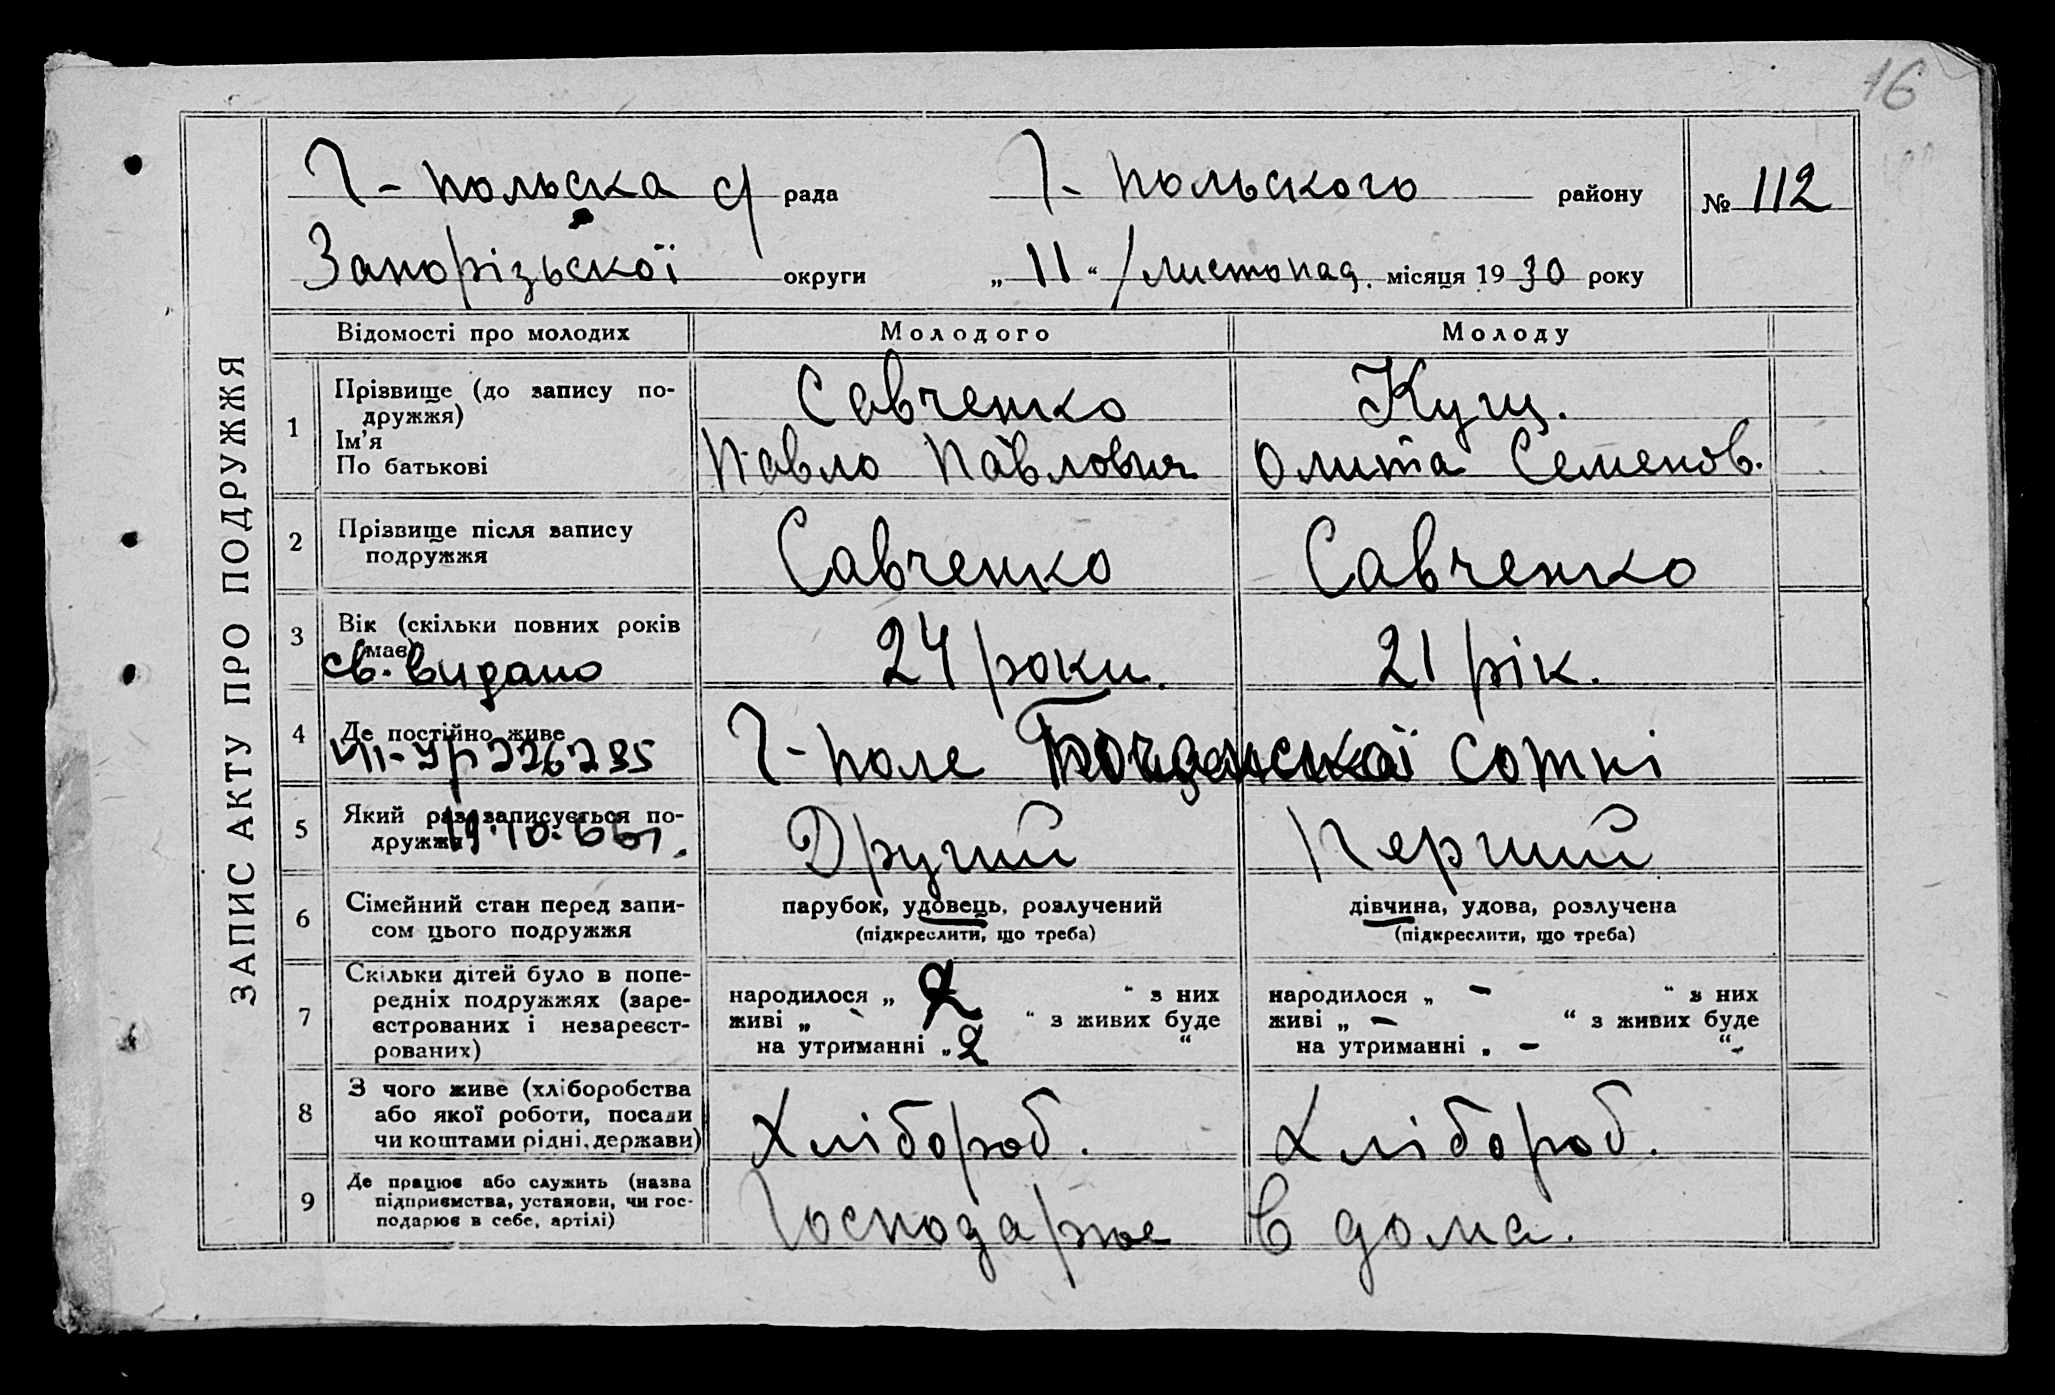 16
Г-польска с/ рада Г-польского району № 112
Запорізьскої округи „ 11 “ листопад. місяця 1930 року
ЗАПИС АКТУ ПРО ПОДРУЖЖЯ
Відомості про молодих Молодого Молоду
1 Прізвище (до запису по-
дружжя)
Ім’я
По батькові
Савченко Кущ.
Павло Павлович Олита Семенов.
2 Прізвище після запису
подружжя
Савченко Савченко
3 Вік (скільки повних років
має)
24 роки. 21 рік.
св. видано
4 Де постійно живе
Г-поле сотні
VII-УР 226295
5 Який раз записується по-
дружжя
Другий Перший
19.10.66г.
6 Сімейний стан перед запи-
сом цього подружжя
парубок, удовець, розлучений дівчина, удова, розлучена
(підкреслити, що треба) (підкреслити, що треба)
7 Скільки дітей було в попе-
редніх подружжях (заре-
єстрованих і незареєст-
рованих)
народилося „ 2 “ з них народилося „ - “ з них
живі „ “ з живих буде живі „ - “ з живих буде
на утриманні „ 2 “ на утриманні „ - “
8 З чого живе (хліборобства
або якої роботи, посади
чи коштами рідні, держави)
Хлібороб. Хлібороб.
9 Де працює або служить (назва
підприємства, установи, чи гос-
подарює в себе, артілі)
Господарює в дома.